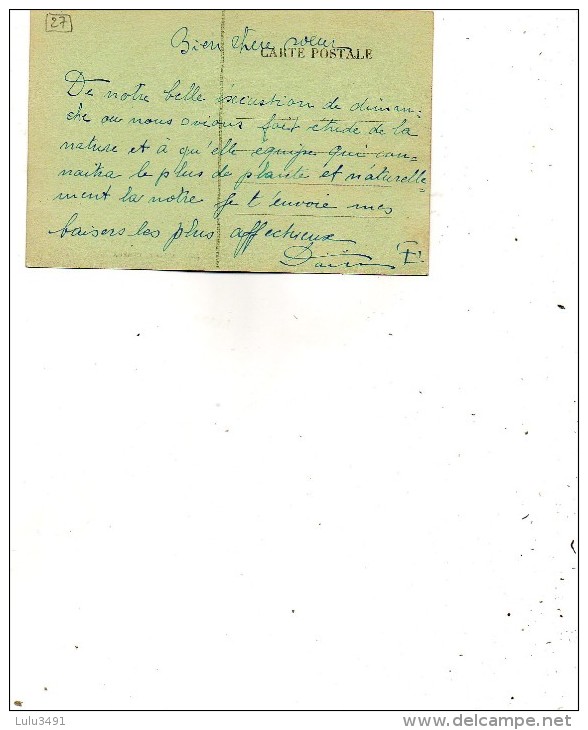 27
Bien chère soeur
CARTE POSTALE
De notre belle excustion de diman-
che ou nous avions fait étude de la
nature et à qu'elle équipe qui con-
naitra le plus de plante et naturelle-
ment la notre Je t'envoie mes
baisers les plus affectueux
Lulu3491
www.delcampe.net